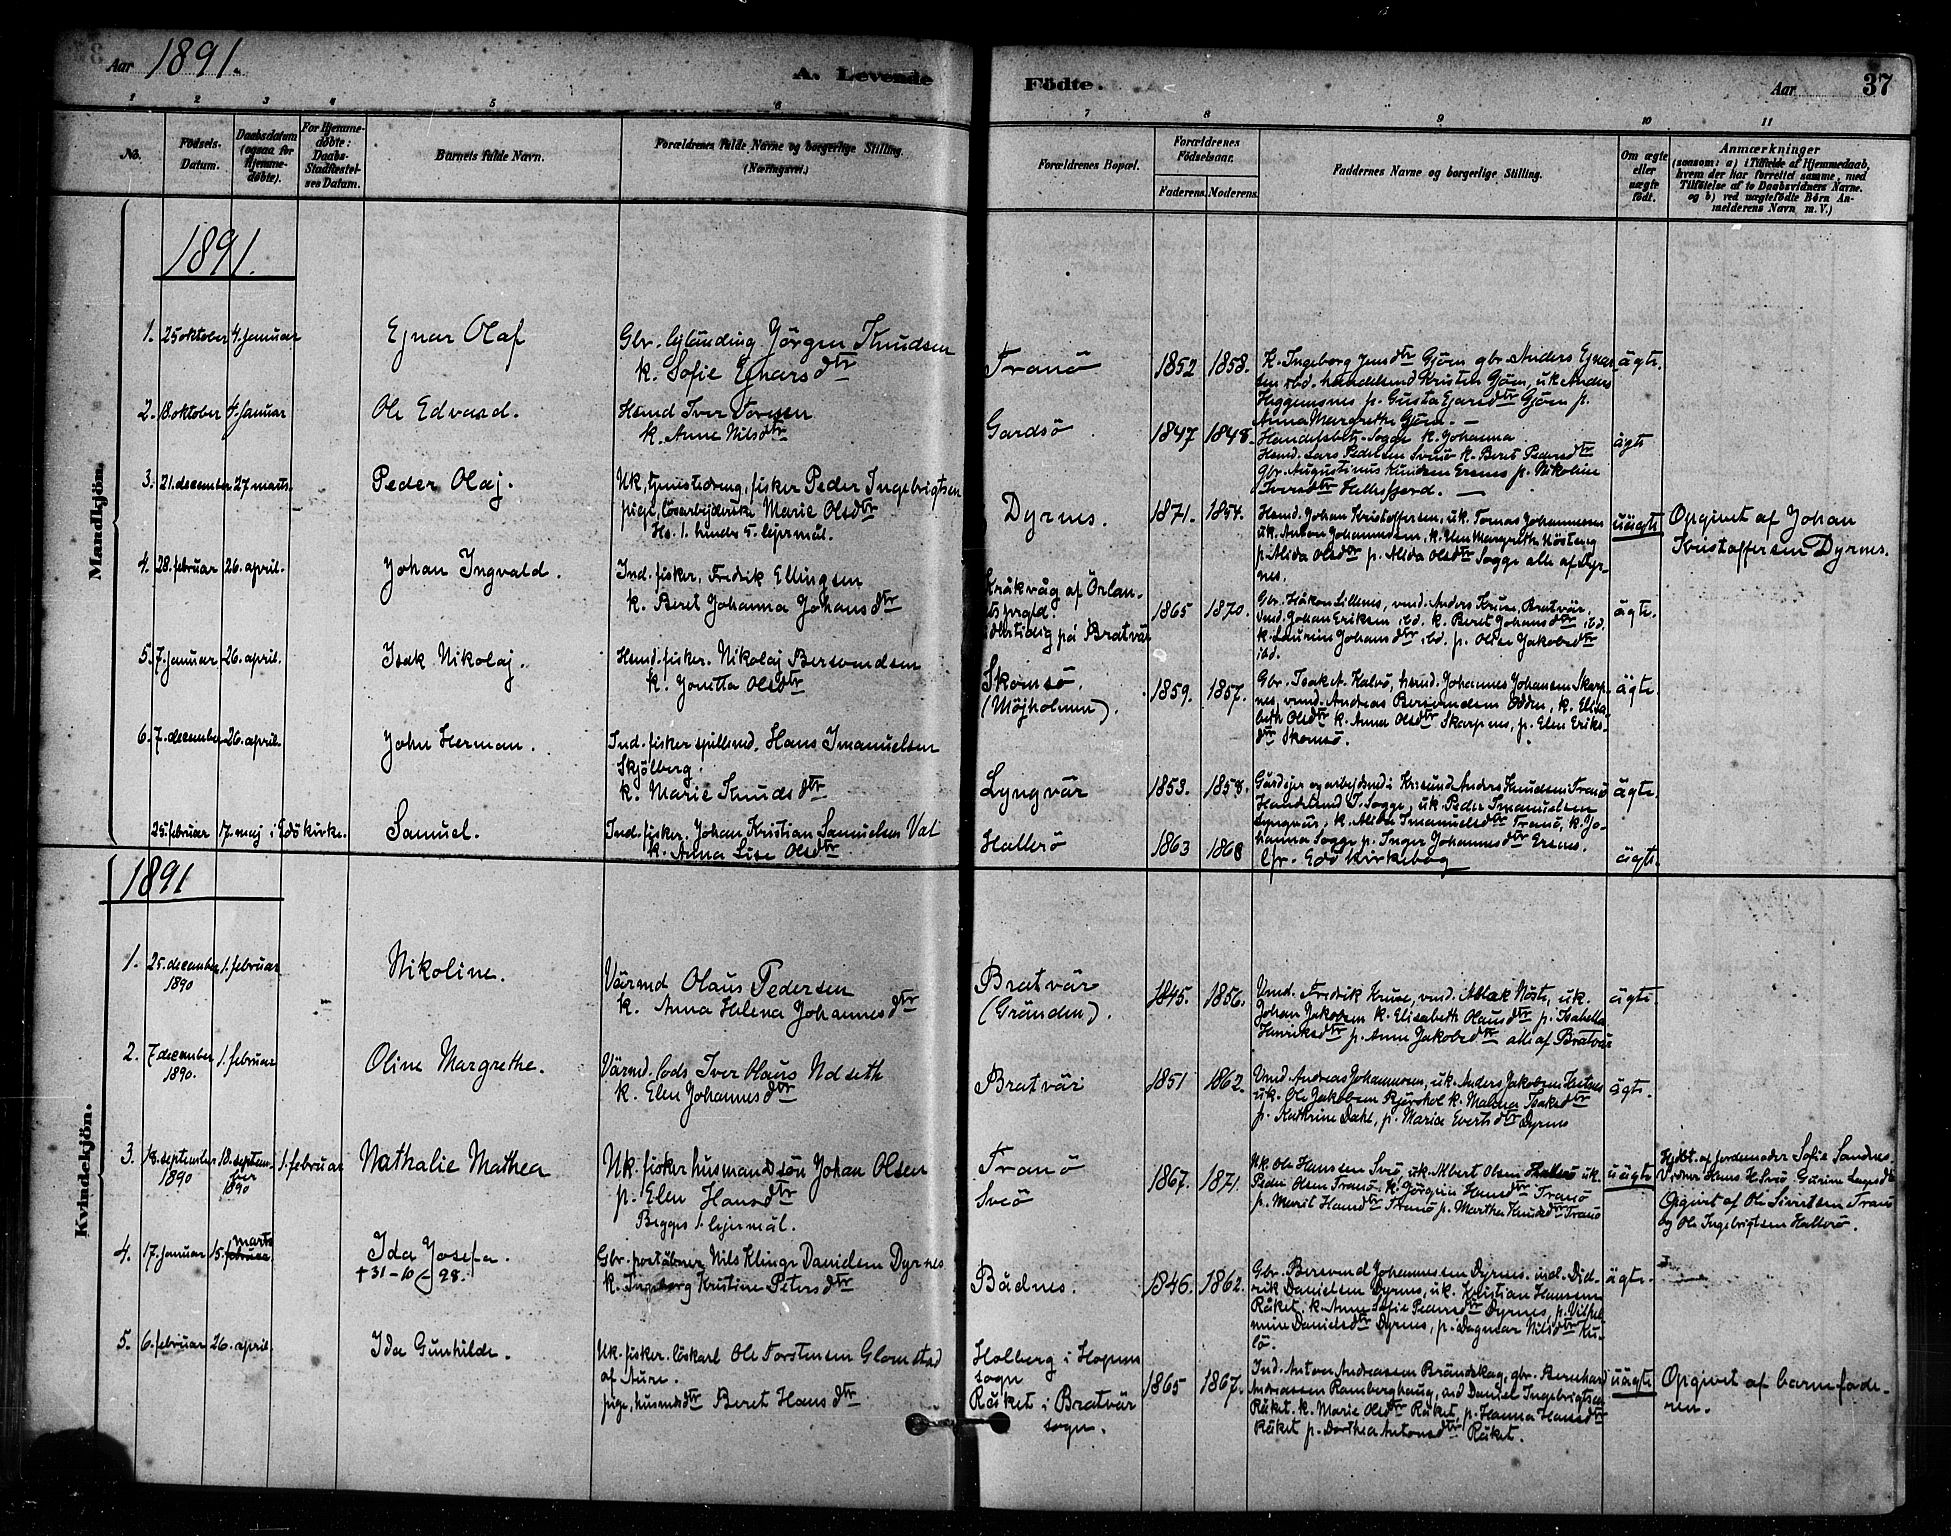 Aar 1891.
A. Levende Födte.
Aar 37
1 2 3 4 5 6 7 8 9 10 11
No.
Födsels-
Datum.
Daabsdatum
(ogsaa for
Hjemme-
døbte).
For Hjemme-
døbte:
Daabs-
Stadfæstel-
ses Datum.
Barnets fulde Navn.
Forældrenes fulde Navne og borgerlige Stilling.
(Næringsvei.)
Forældrenes Bopæl.
Forældrenes
Födselsaar.
Faderens. Moderens.
Faddernes Navne og borgerlige Stilling.
Om ægte
eller
uægte
født.
Anmærkninger
(saasom: a) i Tilfælde af Hjemmedaab,
hvem der har forrettet samme, med
Tilföielse af to Daabsvidners Navne.
og b) ved uægtefödte Börn An-
melderens Navn m. V.)
Mandkjön.
1891.
1. 25 oktober 4. januar
Ejnar Olaf
Gbr. lejlünding Jörgen Knudsen
k. Sofie Ejnarsdtr
Tranö
1852 1858.
K. Ingeborg Jensdtr Gjøen gbr Anders Ejnar-
sen ibd. handelsmd Kristen Gjøen, uk Anders
p. Gusta Ejnarsdtr Gjøen p.
Anna Margrethe Gjøen. —
ägte.
2. 18. oktober 4. januar
Ole Edvard.
Hsmd Iver Toresen
k. Anne Nilsdtr
Gardsö
1847 1848.
Handelsbetj. Sogge k. Johanna
Hsmd. Lars Pedersen Sveö k. Berit Pedersdtr
Gbr. Augustinus Knudsen Ersnes p. Nikoline
Iversdtr Hellesfjord. —
ägte
3. 21. december 27 marts.
Peder Olaj.
Uk, tjenestedreng, fisker Peder Ingebrigtsen
pige, lösarbejderske Marie Olsdtr
Hs. 1. hendes 5. lejermål.
Dyrnes.
1871. 1854.
Hsmd. Johan Kristoffersen, uk. Tomas Johannessen
uk. Anton Johannessen, k. Elen Margrethe Nösteng
p. Alida Olsdtr p. Alida Olsdtr Sogge alle af Dyr-
nes.
uägte
Opgivet af Johan
Kristoffersen Dyrnes.
4. 28. februar 26. april.
Johan Ingvald.
Ind. fisker, Fredrik Ellingsen
k. Beret Johanna Johansdtr
Kråkvåg af Örlan-
dets prgld.
midlertidig på Bratvär
1865 1870.
Gbr. Håkon Lillenes, vmd. Anders Kruse, Bratvär,
vmd. Johan Eriksen ibd. k. Beret Johansdtr ibd.
k. Laurine Johansdtr ibd. p. Oline Jakobsdtr
ibd.
ägte.
5. 7. januar 26. april.
Isak Nikolaj.
Hsmd. fisker. Nikolaj Bersvendsen
k. Jonetta Olsdtr
Skomsö.
(Möjholmen).
1859. 1857.
Gbr. Isak A. Kalvö, hsmd. Johannes Johansen Skarp-
nes, vmd. Andreas Bersvendsen Odden, k. Elisa-
beth Olsdtr k. Anna Olsdtr Skarpnes, p. Elen Eriks-
dtr Skomsö.
ägte.
6. 7. december 26. april.
John Herman.
Ind. fisker spillemd. Hans Imanuelsen
Skjölberg.
k. Marie Knudsdtr
Lyngvär
1853. 1858.
Gårdejer og arbejdsmd i Krisund Anders Knudsen Tranö
Handelsmd T. Sogge, uk Peder Imanuelsen
Lyngvär, k. Alida Imanuelsdtr Tranö, k. Jo-
hanna Sogge p. Inger Johannesdtr Ersnes.
ägte.
25. februar 17. maj i Edö kirke.
Samuel.
Ind. fisker. Johan Kristian Samuelsen Vat
k. Anna Lise Olsdtr
Hallerö
1863 1868
Cfr. Edö kirkebog
ägte.
Kvindekjön.
1891
1. 25. december 1890 1. februar
Nikoline.
Värmd Olaus Pedersen
k. Anna Helena Johannesdtr
Bratvär
(Gränden).
1845. 1856.
Vmd. Fredrik Kruse, vmd. Ablak Nöste, uk.
Johan Jakobsen k. Elisabeth Olausdtr p. Isabella
Henriksdtr p. Anne Jakobsdtr alle af Bratvär
ägte.
2. 7 december 1890. 1. februar
Oline Margrethe.
Värmd. lods Iver Olaus Ndseth
k. Elen Johannesdtr
Bratvär
1851 1862.
Vmd Andreas Johannesen, uk. Anders Jakobsen
uk. Ole Jakobsen k. Malena Isaksdtr
p. Kathrine Dahl, p. Marie Evertsdtr Dyrnes
ägte.
3. 18. september 1890 18. septem-
ber 1890 1. februar
Nathalie Mathea
Uk. fisker husmandssön Johan Olsen
p. Elen Hansdtr
Begges 1. lejermål.
Tranö
Sveö
1867. 1871.
Uk. Ole Hansen Sveö, uk. Albert Olsen Hallerö uk.
Peder Olsen Tranö, k. Jörgine Hansdtr Tranö
p. Marit Hansdtr Tranö p. Marthe Knudsdtr Tranö
uägte
Hjdöbt. af jordemoder Sofie Sandnes.
Vidner Hans H Sveö, Gurine Larsdtr
Opgivet af Ole Sivertsen Tranö
og Ole Ingebrigtsen Hallerö.
4. 17. januar 15. februar marts
Ida Josefa.
+ 31-10-98.
Gbr. poståbner Nils Klinge Danielsen Dyrnes
k. Ingeborg Kristine Petersdtr
Bådnes.
1846. 1862.
Gbr. Bersvend Johannessen Dyrnes. ind. Did-
rik Danielsen Dyrnes, uk. Kristian Hansen
Råket. k. Anne Sofie Pedersdtr Dyrnes, p. Vilhel-
mine Danielsdtr Dyrnes, p. Dagmar Nilsdtr Ku-
lö.
ägte.
5. 6. februar 26. april
Ida Gunhilde.
Uk. fisker. löskarl Ole Torstensen Glomstad
af Aure.
pige, husmdsdtr Beret Hansdtr
Holberg i Hopens
sogn
Råket i Bratvär
sogn.
1865 1867.
Ind. Anton Andreassen Brändskag, gbr. Bernhard
Andreassen Ramberghaug, ind Daniel Ingebrigtsen
Råket. k. Marie Olsdtr Råket, p. Hanna Hansdtr
Råket p. Dorthea Antonsdtr Råket.
uägte
Opgivet af barnefade-
ren.